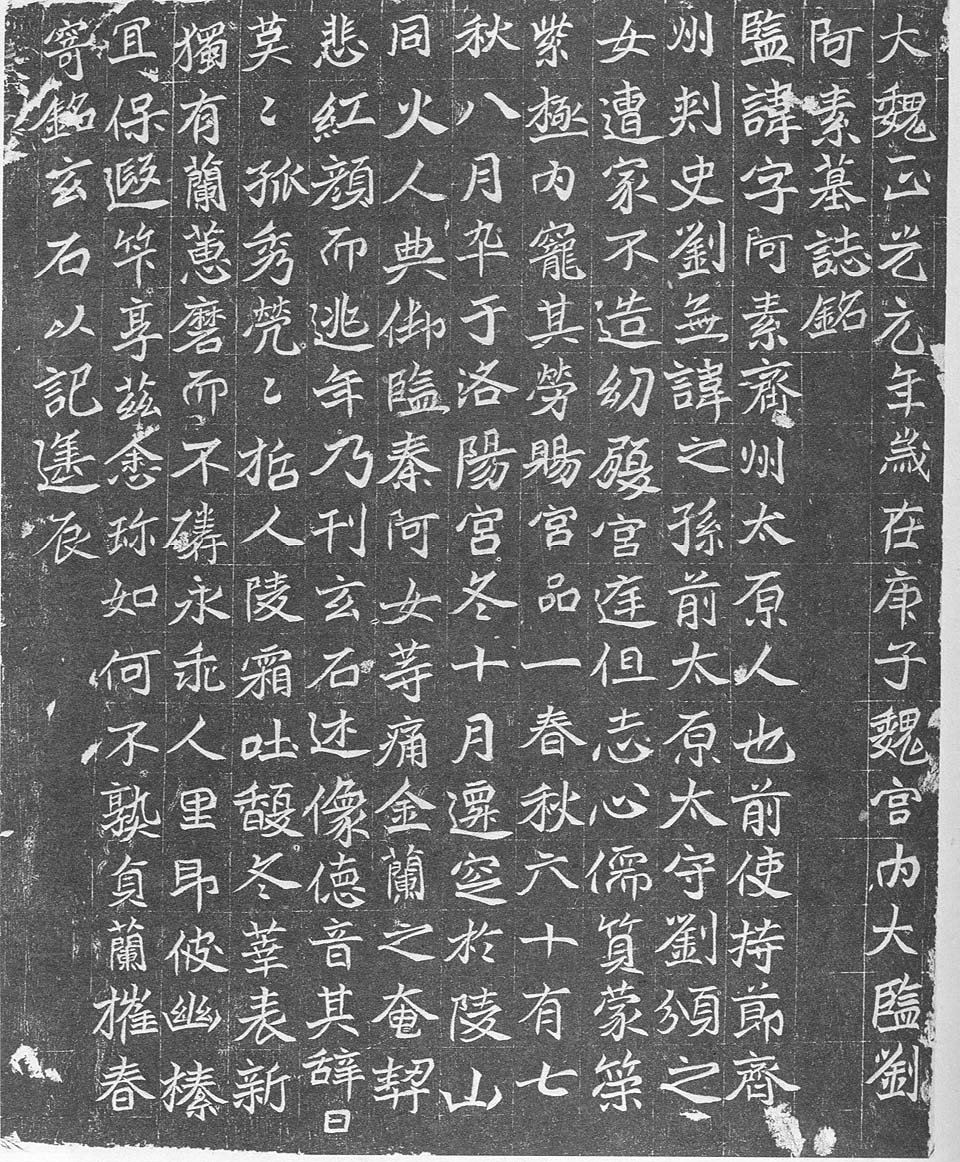 大魏正光元年歲在庚子魏宮内大監劉
阿素墓誌銘
監諱字阿素齊州太原人也前使持節齊
州刾史劉無諱之孫前太原太守劉頒之
女遭家不造幼履宮庭但志心儒質蒙策
紫極内寵其勞賜宮品一春秋六十有七
秋八月卒于洛陽宮冬十月遷窆於陵山
同火人典御監秦阿女䓁痛金蘭之奄契
悲紅顔而逃年乃刊玄石述像德音其辞曰
莫〻孤秀煢〻哲人陵霜吐馥冬華表新
獨有蘭蕙磨而不磷永乖人里即彼幽榛
宜保遐笇享兹悆珎如何不孰貞蘭摧春
寄銘玄石以記遥辰